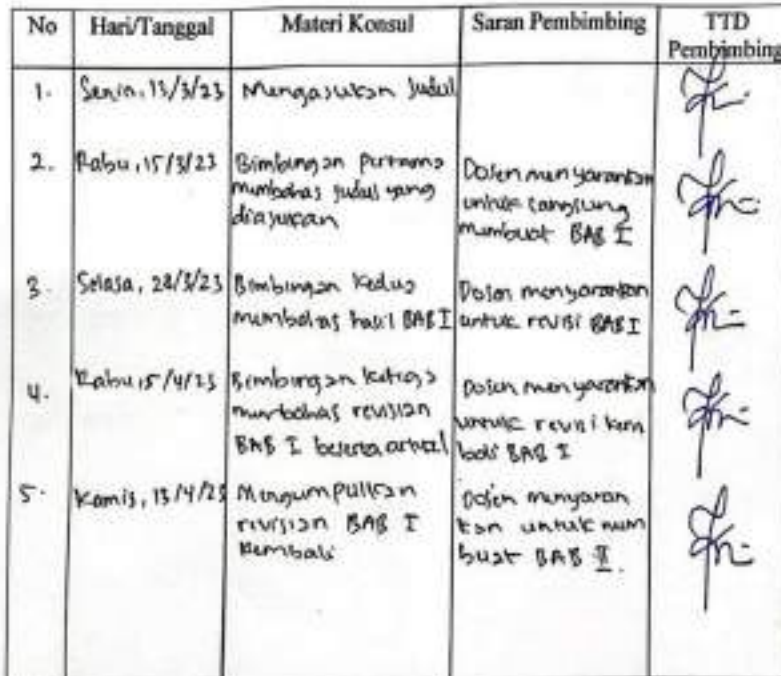 No Hari/Tanggal Materi Konsul Saran Pembimbing TTD Pembimbing
1. Senin, 13/3/23 Mengajukan Judul
2. Rabu, 15/3/23 Bimbingan pertama
membahas judul yang
diajukan
Dosen menyarankan
untuk langsung
membuat BAB I
3. Selasa, 28/3/23 Bimbingan Kedua
membahas hasil BAB I
Dosen menyarankan
untuk revisi BAB I
4. Rabu, 5/4/23 Bimbingan Ketiga
membahas revisian
BAB I beserta
Dosen menyarankan
untuk revisi kem
bali BAB I
5. Kamis, 13/4/23 Mengumpulkan
revisian BAB I
Kembali
Dosen menyaran
kan untuk mem
buat BAB II.